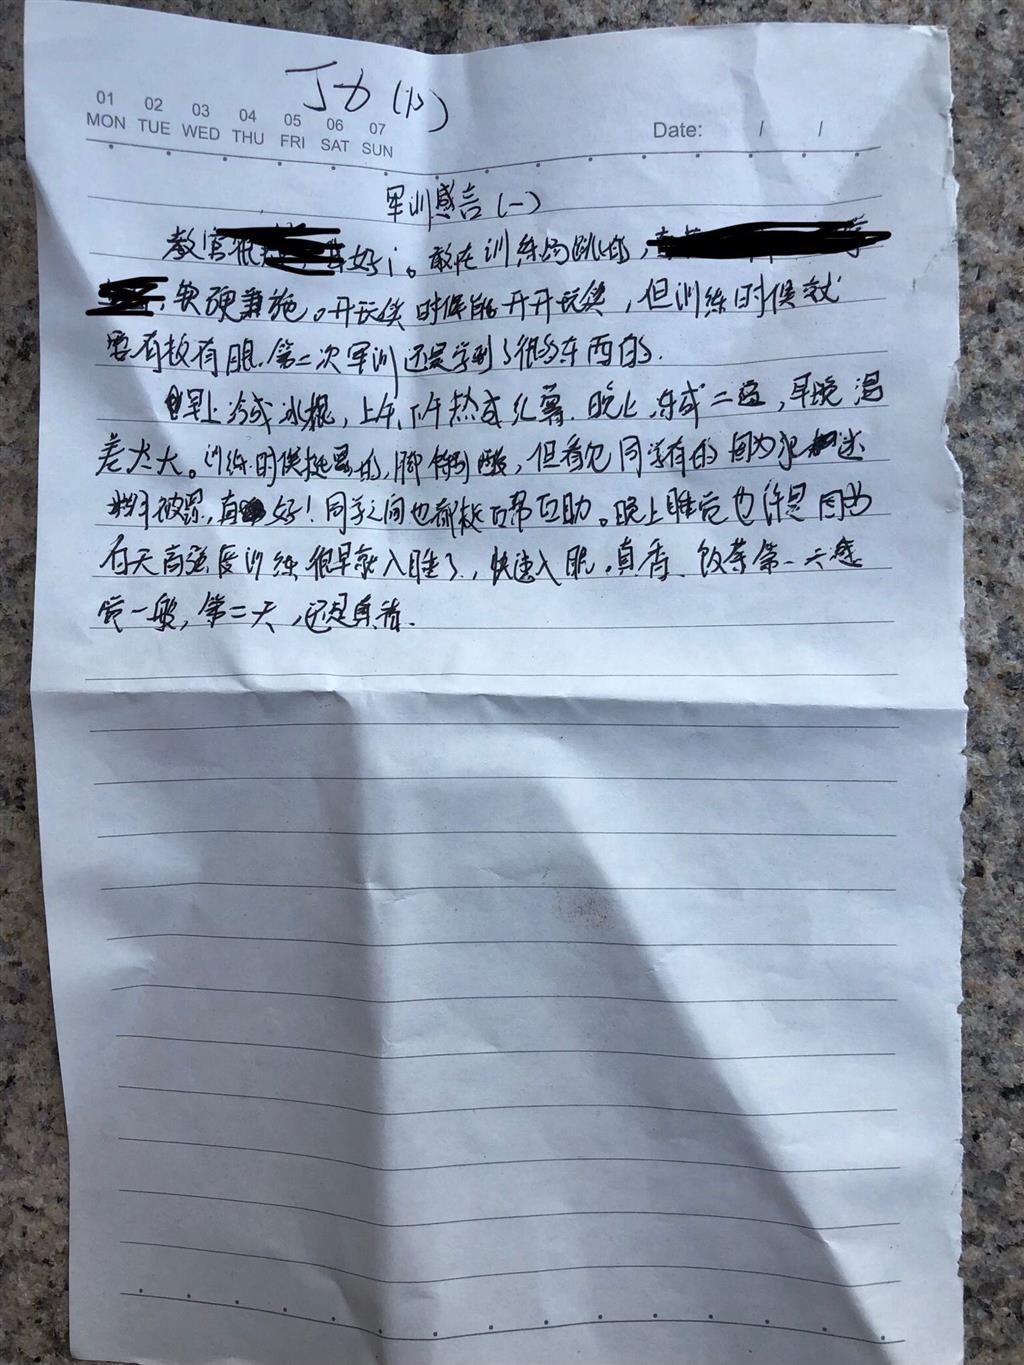 01 02 03 04 05 06 07
MON TUE WED THU FRI SAT SUN
Date: / /
军训感言(一)
教官很 好 。敢在训练场跳的,
软硬兼施。开玩笑时候能开开玩笑,但训练时候就
要有板有眼.第二次军训还是学到了很多东西的.
早上冷成冰棍,上午、下午热成 晚上冻成二 ,早晚温
差太大。训练时候挺累的,脚特别酸,但看见同学有的因为
被罚,真 好!同学之间也都挺互帮互助。晚上睡觉也许是因为
白天高强度训练 很早就入睡了,快速入眠,真香、饭菜第一天感
觉一般,第二天,还是真香.